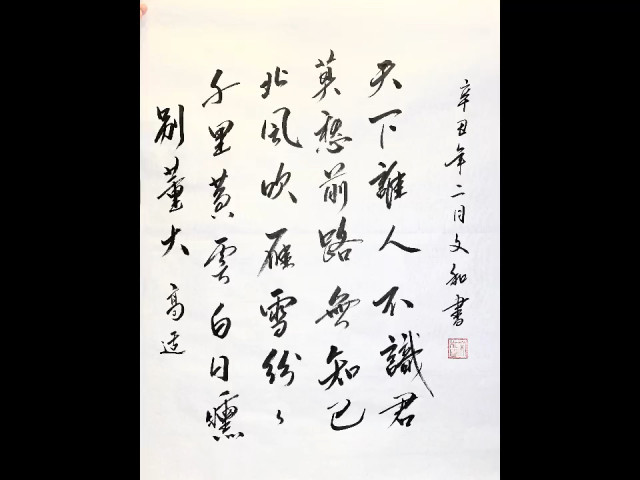 別董大 高适
千里黄雲白日曛
北風吹雁雪紛々
莫愁前路無知己
天下誰人不識君
辛丑年二月文和書